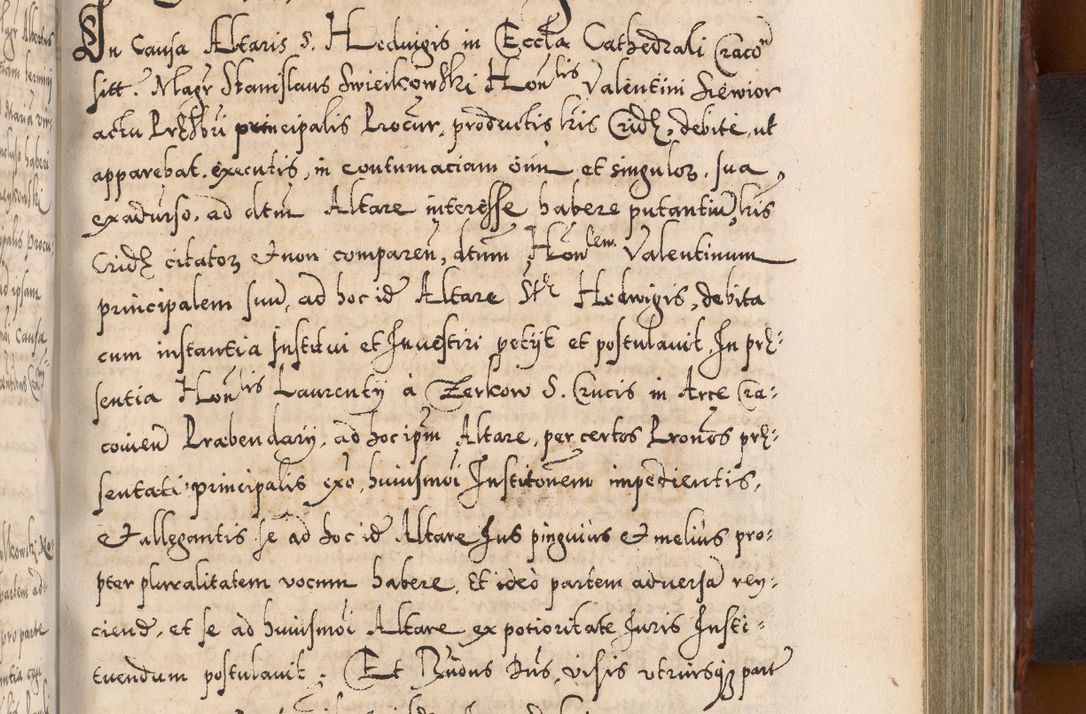 In Causa Altaris S. Hedvigis in Eccla Cathedrali Cracoñ
sitt. Magr Stanislaus Swieikowski Honlis Valentini Siewior
actu Prȩsbri principalis Procur, productis lris Cridȩ, debite, ut
apparebat. executis, in contumaciam oïm et singulor. sua
exadurso, ad dtm Altare interesse habere putantiu, lris
Cridȩ citator et non compareñ, dtum Honlem Valentinum
principalem suu, ad hoc id Altare Stȩ Hedwigis, debita
cum instantia Institui et Investiri petijt et postulavit In prȩ:
sentia Honlis Laurentij à Zerkow S. Crucis in Arce Cra:
covień Præbendarij, ad hoc ipm Altare, per certos Pronos prȩ:
sentati principalis exo, huiusmoi Institonem impedientis,
et allegantis se ad hoc id Altare Ius pinguius et melius pro:
pter pluralitatem vocum habere, et ideò partem adversa reij:
ciend, et se ad huiusmoi Altare ex potioritate Iuris Insti:
tuendum postulavit. Et Dnus, visis utriusq3 part